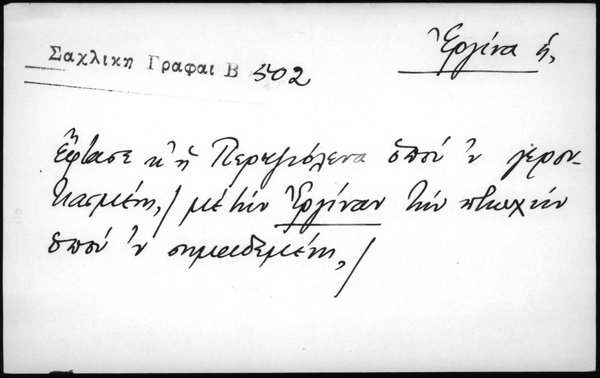 Σαχλικη Γραφαι Β 502
Ἐργίνα ἡ,
Ἔφτασε κ' ἡ Περυζόλενα ὁποὺ 'ν γερον-
τιασμένη, / μὲ τὴν Ἐργίναν τὴν πτωχὴν
ὁποὺ 'ν σημαδεμένη, /